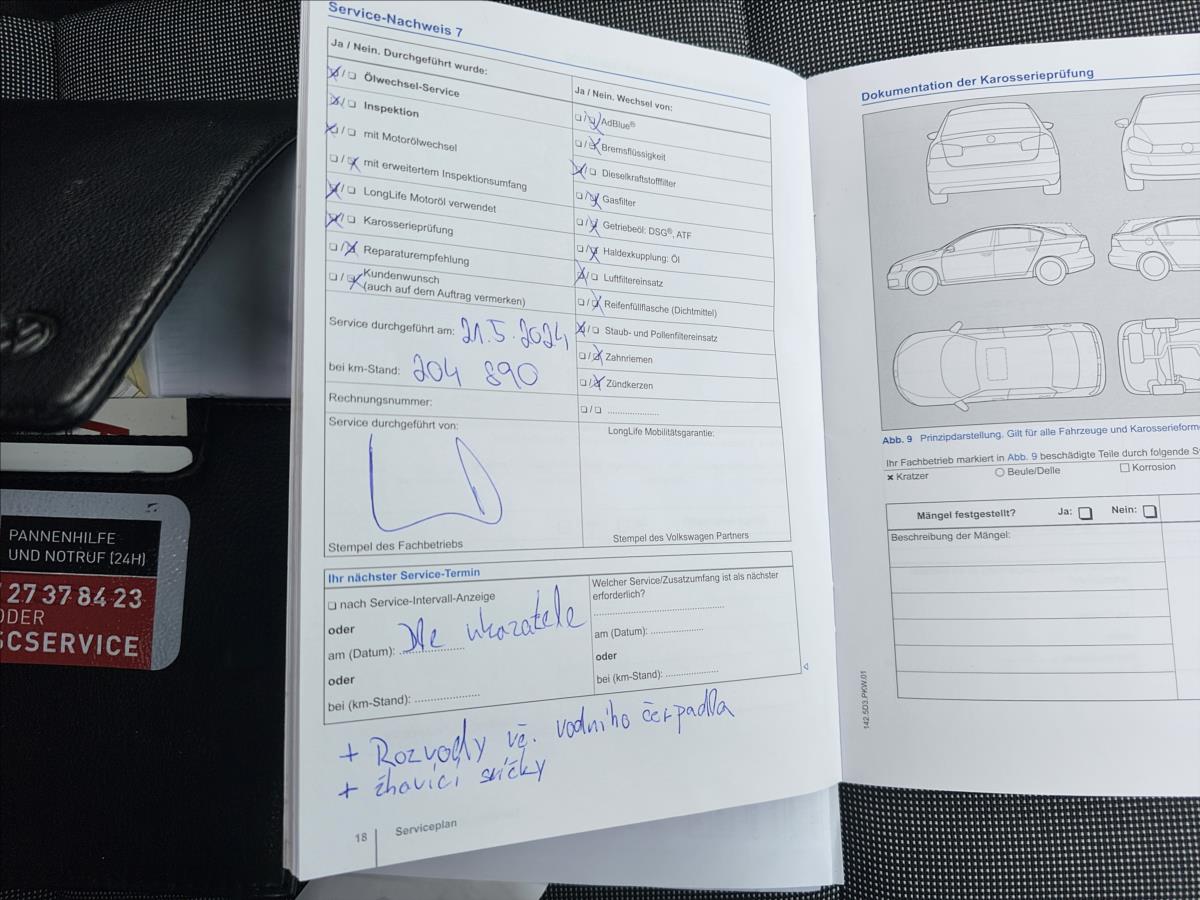 Service-Nachweis 7
Ja / Nein. Durchgeführt wurde:
Ölwechsel-Service
Inspektion
mit Motorölwechsel
mit erweitertem Inspektionsumfang
LongLife Motoröl verwendet
Karosserieprüfung
Reparaturempfehlung
Kundenwunsch
(auch auf dem Auftrag vermerken)
Service durchgeführt am: 21.5.2024
bei km-Stand: 204 890
Rechnungsnummer:
Service durchgeführt von:
Stempel des Fachbetriebs
Ja / Nein. Wechsel von:
AdBlue®
Bremsflüssigkeit
Dieselkraftstofffilter
Gasfilter
Getriebeöl: DSG®, ATF
Haldexkupplung: Öl
Luftfiltereinsatz
Reifenfüllflasche (Dichtmittel)
Staub- und Pollenfiltereinsatz
Zahnriemen
Zündkerzen
LongLife Mobilitätsgarantie:
Stempel des Volkswagen Partners
Ihr nächster Service-Termin
nach Service-Intervall-Anzeige
oder
am (Datum): Dle ukazatele
oder
bei (km-Stand):
Welcher Service/Zusatzumfang ist als nächster
erforderlich?
am (Datum):
oder
bei (km-Stand):
+ Rozvody vč. vodního čerpadla
+ žhavící svíčky
18 Serviceplan
Dokumentation der Karosserieprüfung
Abb. 9 Prinzipdarstellung. Gilt für alle Fahrzeuge und
Ihr Fachbetrieb markiert in Abb. 9 beschädigte Teile durch folgende
× Kratzer
Beule/Delle
Korrosion
Mängel festgestellt? Ja: Nein:
Beschreibung der Mängel:
142.5D3.PKW.01
PANNENHILFE
UND NOTRUF (24H)
27 37 84 23
ODER
SCSERVICE